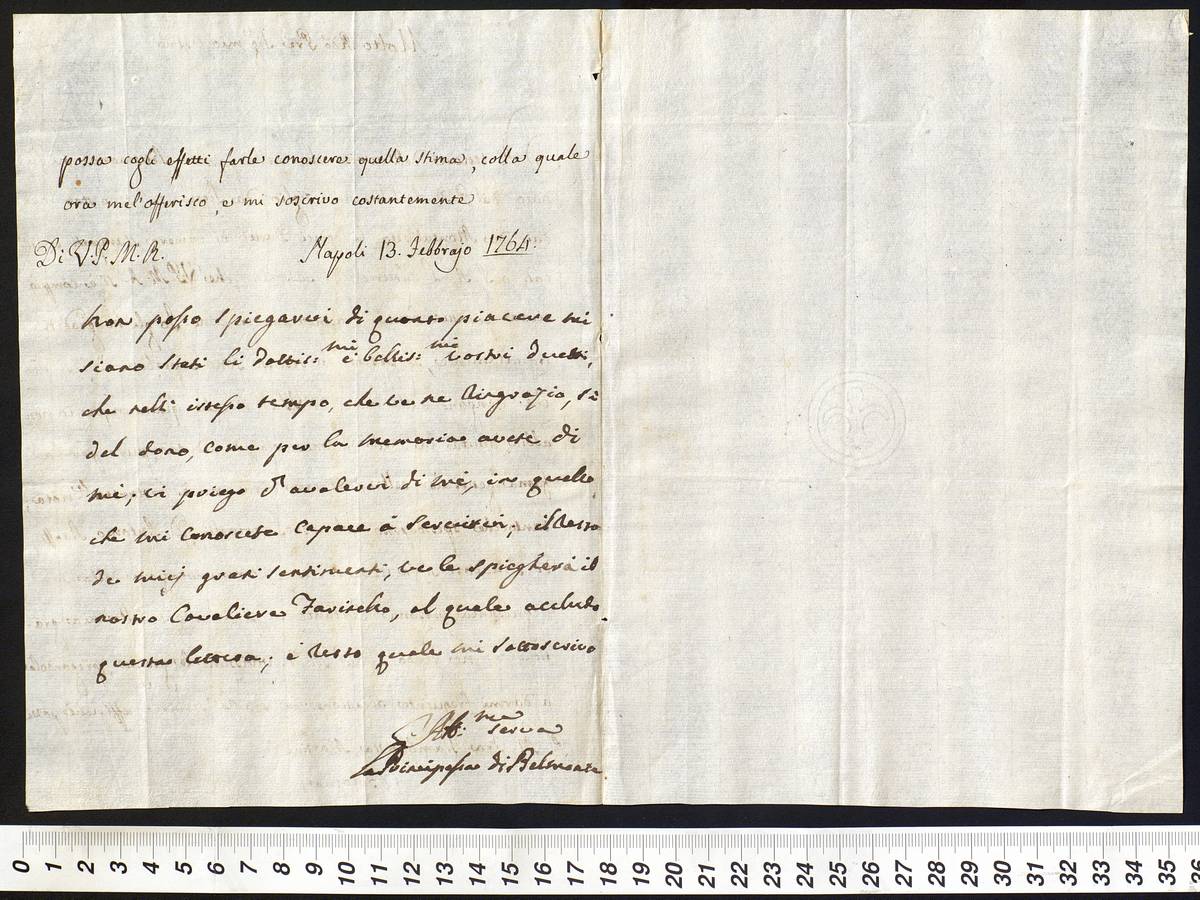 possa cogli effetti farle conoscere quella stima, colla quale
ora mel'offerisco, e mi soscrivo costantemente
Di V.P.M.R. Napoli 13. Febbrajo 1764.
Non posso spiegarvi di quanto piacere mi
siano stati li dottiss:mi e belliss:mi vostri duetti,
che nell' istesso tempo, che ve ne ringrazio, sì
del dono, come per la memoria avete di
mè; vi priego d' avalervi di mè, in quello
che mi conoscete capace à servirvi; il resto
de miej grati sentimenti, ve le spiegherà il
nostro Cavaliere, al quale accludo
questa lettera; e resto quale mi sottoscrivo
Aff:ma serva
La Principessa di Belmonte
0 1 2 3 4 5 6 7 8 9 10 11 12 13 14 15 16 17 18 19 20 21 22 23 24 25 26 27 28 29 30 31 32 33 34 35 36